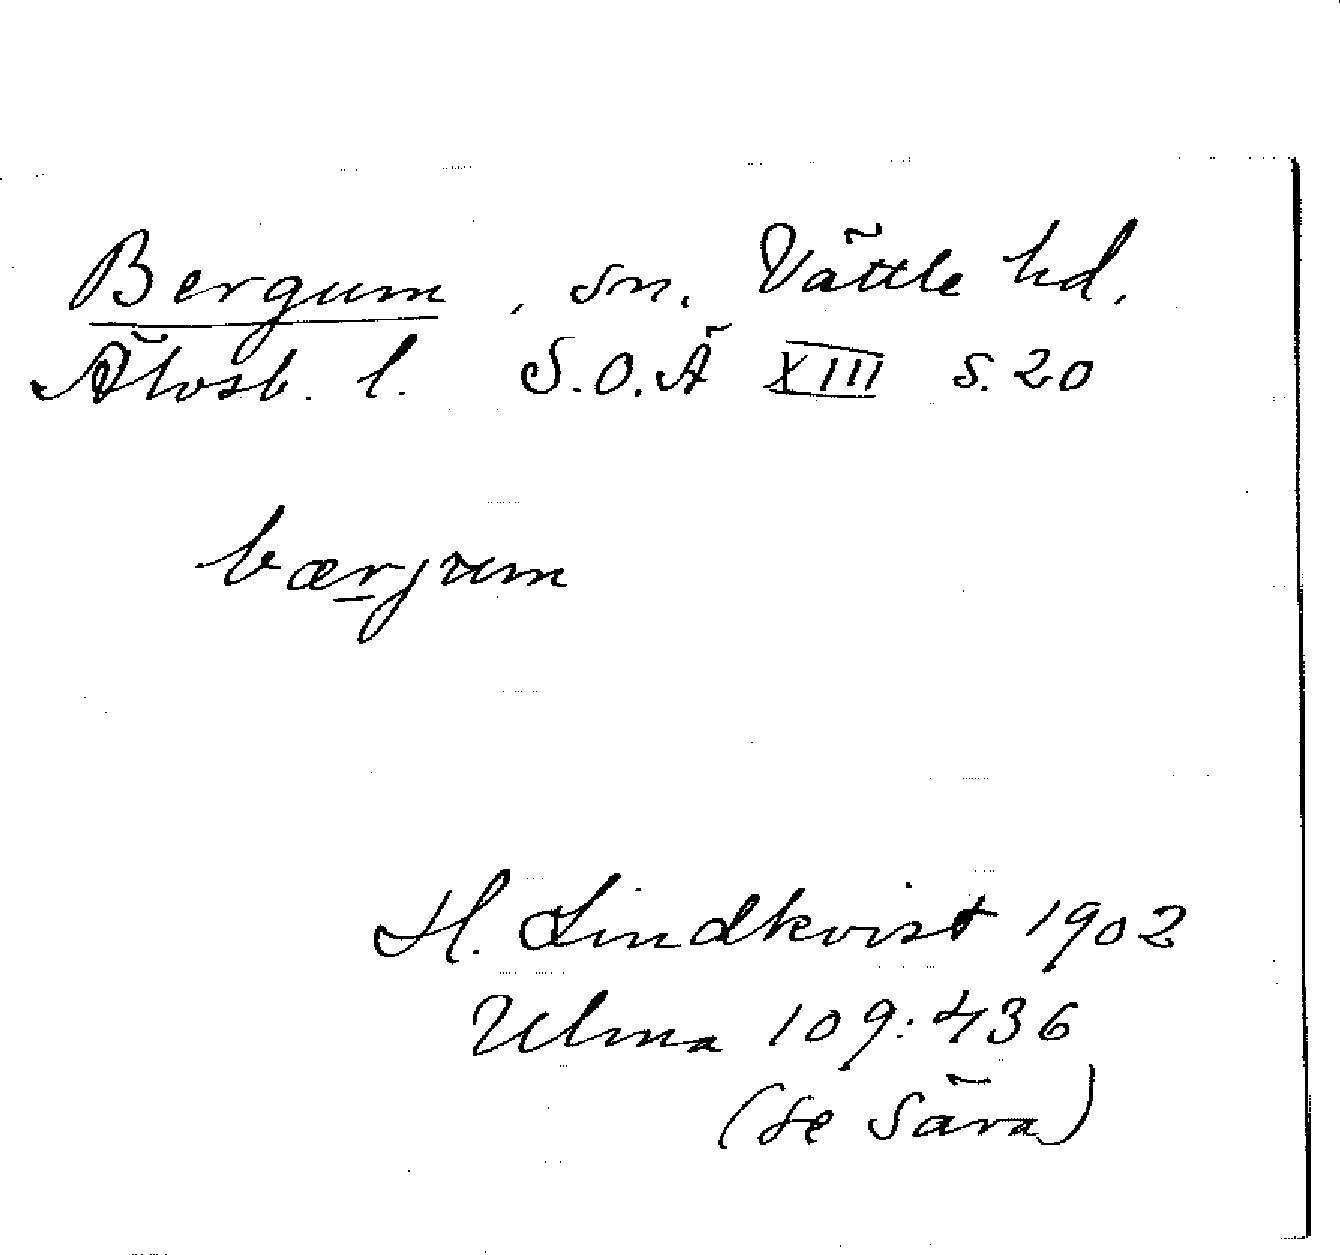 Bergum, sn. Vättle hd.
Älvsb. l. S.O.Ä XIII s. 20
bærjum
H. Lindkvist 1902
Ulma 109:436
(se Säva)